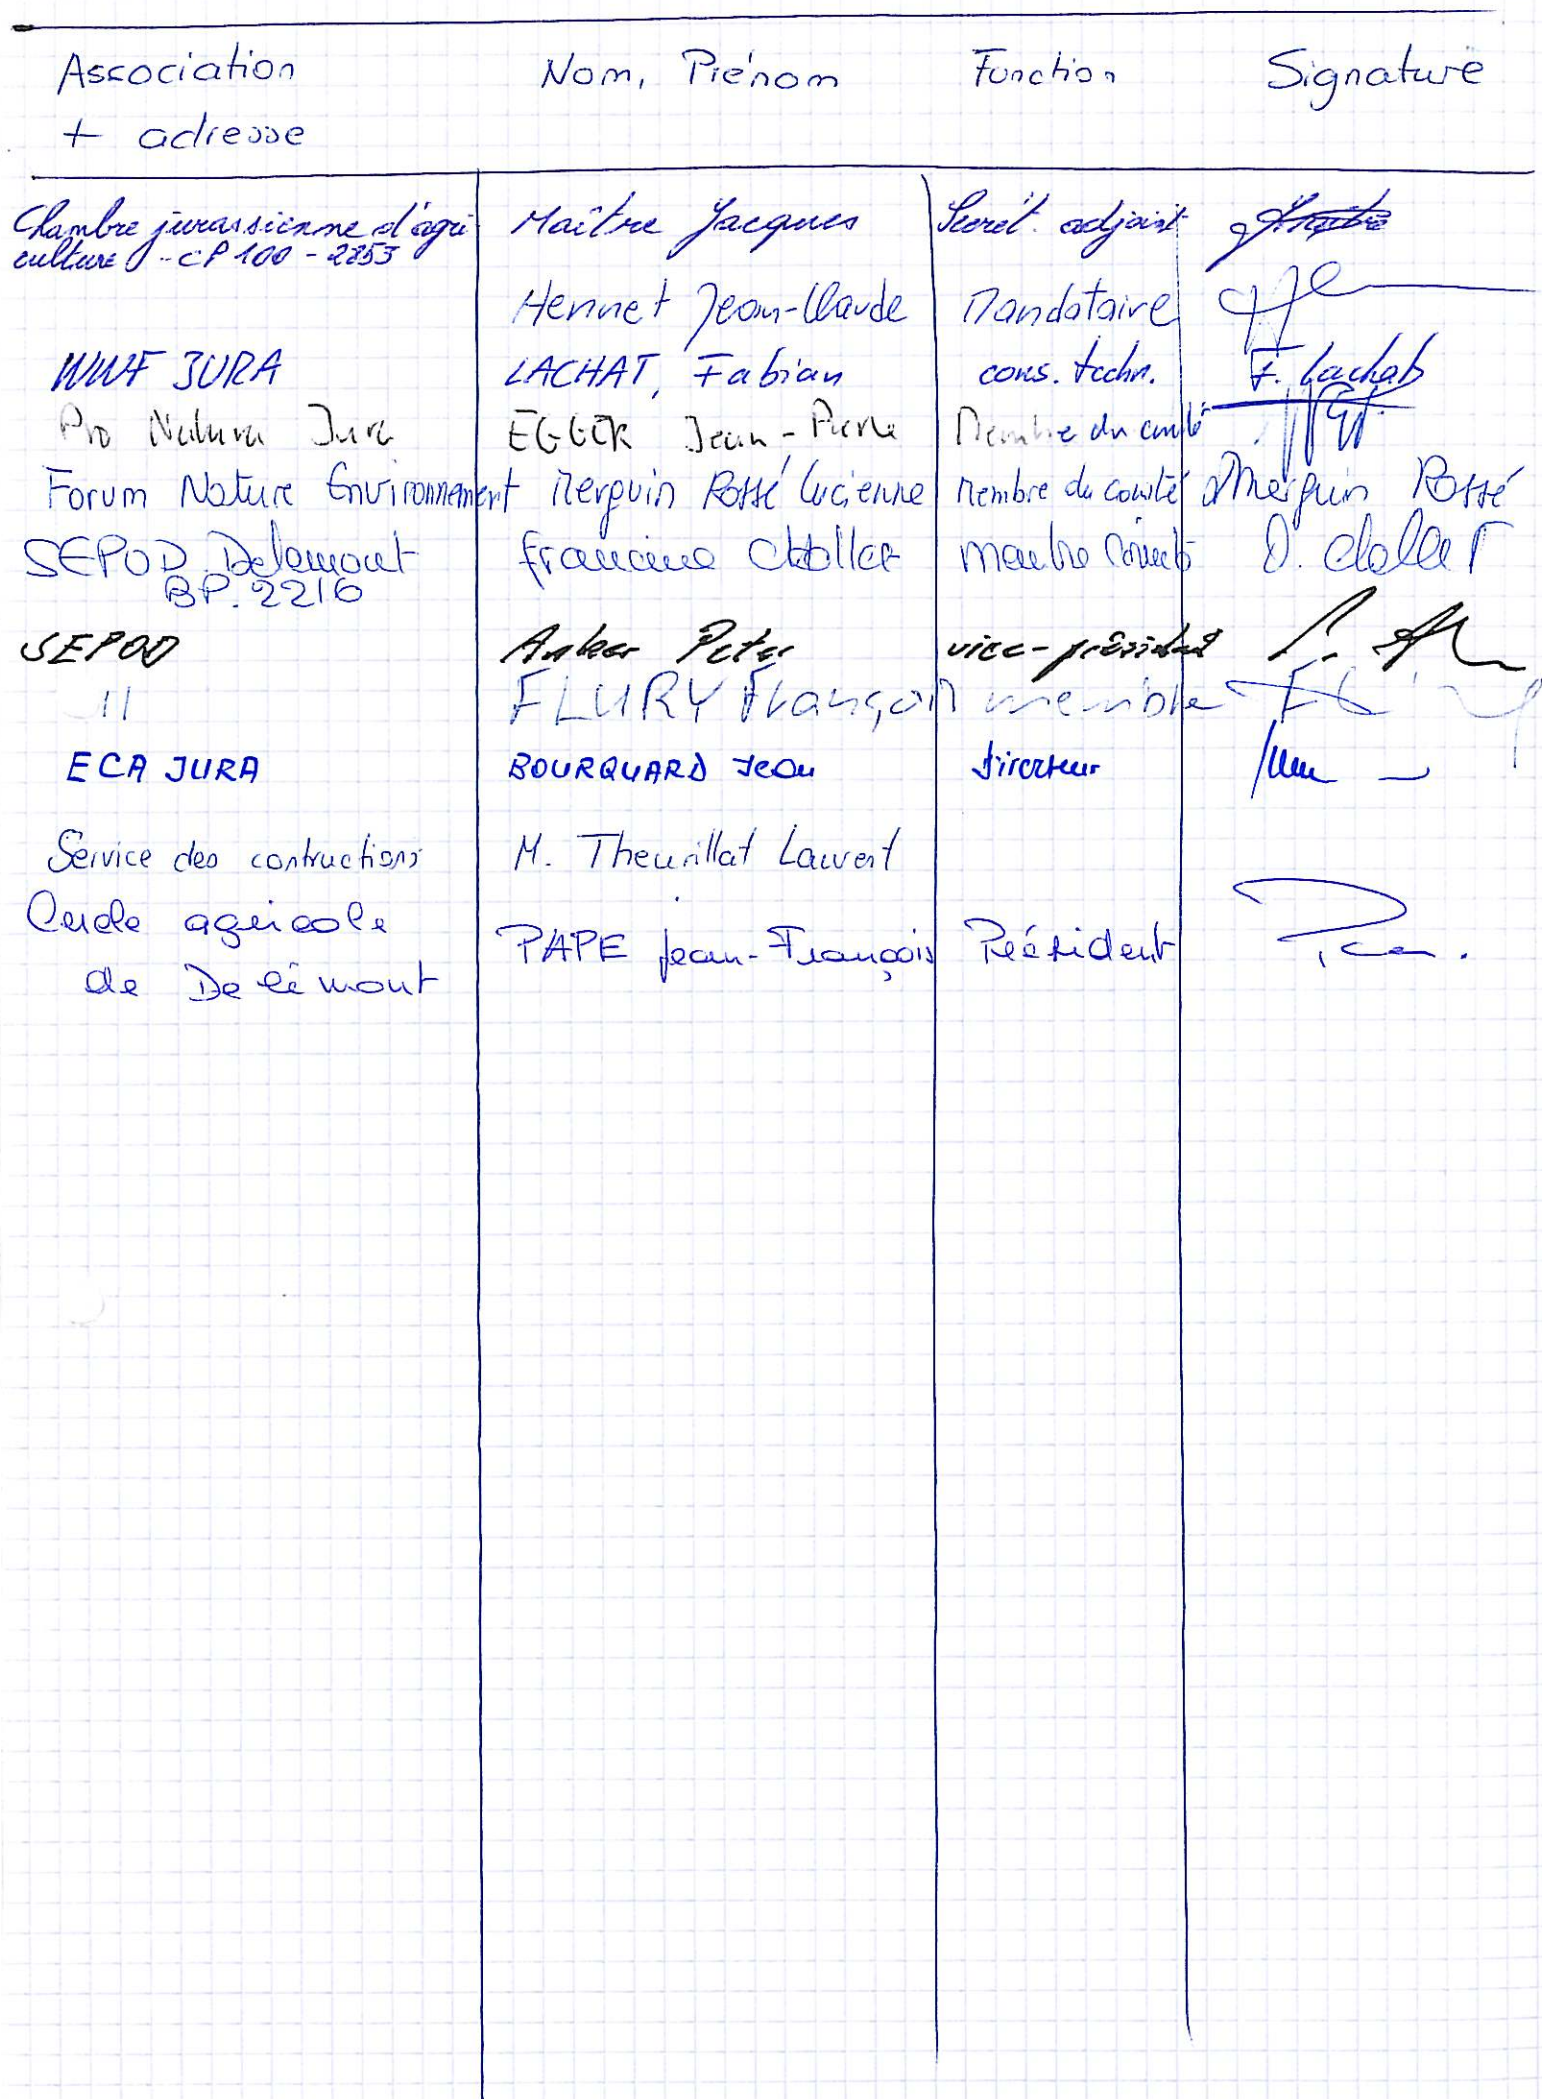 Association Nom, Prénom Function Signature
+ adresse
Chambre jurassienne d'agri Maître Jacques Secrét. adjoint
culture - CP 100 - 2853
Hennet Jean-Claude Mandataire
WWF JURA LACHAT, Fabian cons. techn. F. Lachat
Pro Natura Jura EGGER Jean-Pierre Membre du comité
Forum Nature Environnement Merguin Rossé Lucienne Membre du comité Merguin Rossé
SEPOD Delémont Francine Chollet membre comité
BP. 2216
SEPOD Anker Peter vice-président
11 FLURY François membre
ECA JURA BOURQUARD Jean directeur
Service des contructions M. Theurillat Laurent
Cercle agricole
de Delémont PAPE Jean-François Président